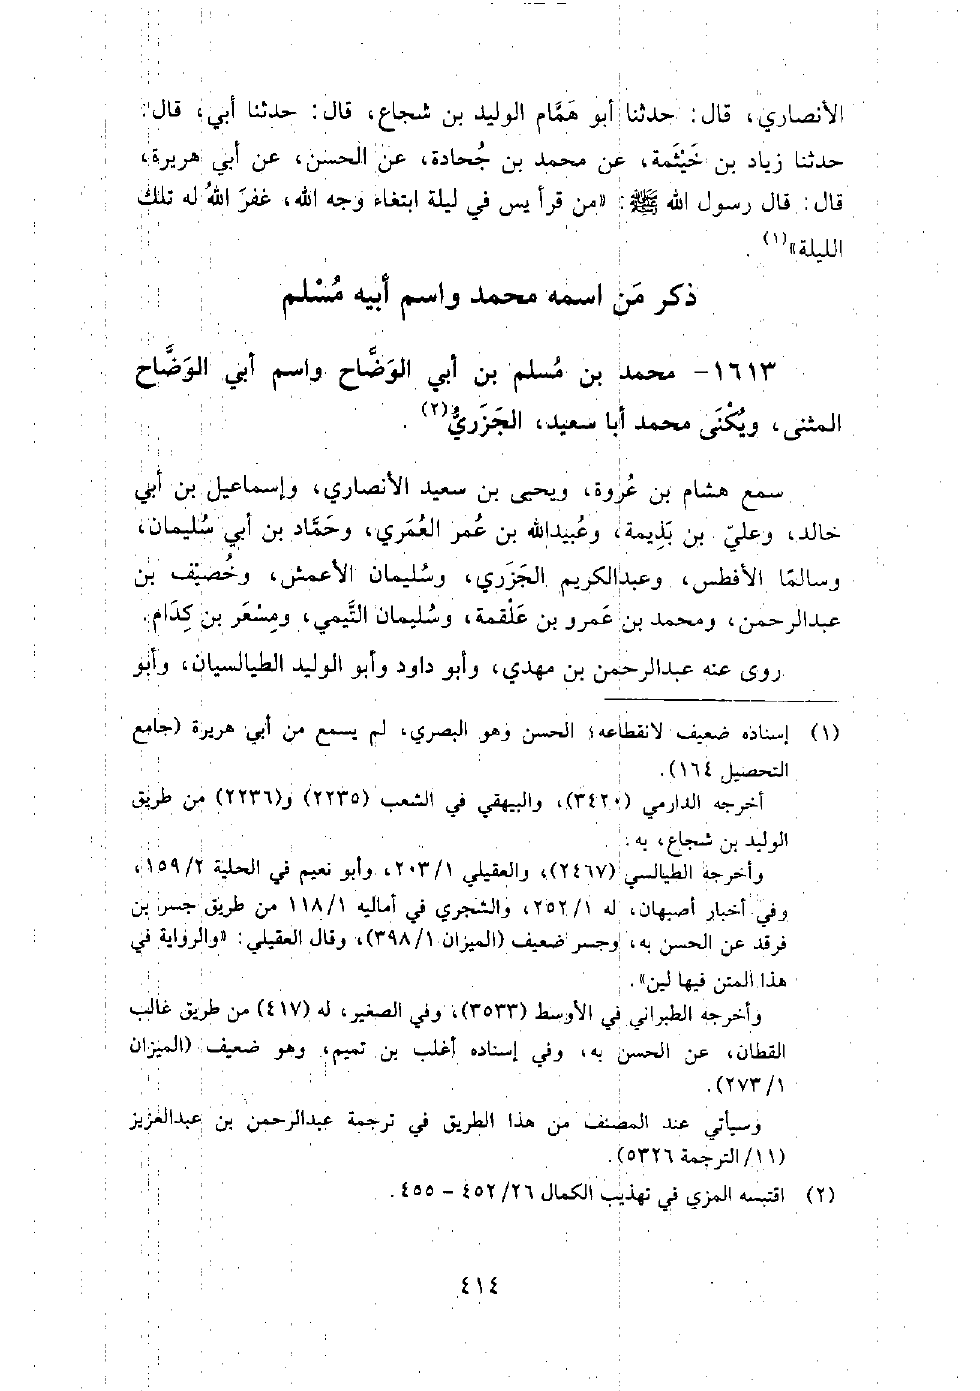 الأنصاري، قال: حدثنا أبو هَمَّام الوليد بن شجاع، قال: حدثنا أبي، قال:
حدثنا زياد بن خَيْثَمة، عن محمد بن جُحادة، عن الحسن، عن أبي هريرة،
قال: قال رسول الله ﷺ: «من قرأ يس في ليلة ابتغاء وجه الله، غفرَ اللهُ له تلك
الليلة»(١).
ذكر مَن اسمه محمد واسم أبيه مُسْلم
١٦١٣- محمد بن مُسلم بن أبي الوَضَّاح واسم أبي الوَضَّاح
المثنى، ويُكْنَى محمد أبا سعيد، الجَزَريُّ(٢).
سمع هشام بن عُروة، ويحيى بن سعيد الأنصاري، وإسماعيل بن أبي
خالد، وعليّ بن بَذِيمة، وعُبيدالله بن عُمر العُمَري، وحَمَّاد بن أبي سُليمان،
وسالمًا الأفطس، وعبدالكريم الجَزَري، وسُليمان الأعمش، وخُصيْف بن
عبدالرحمن، ومحمد بن عَمرو بن عَلْقمة، وسُليمان التَّيمي، ومِسْعَر بن كِدَام.
روى عنه عبدالرحمن بن مهدي، وأبو داود وأبو الوليد الطيالسيان، وأبو
(١) إسناده ضعيف لانقطاعه؛ الحسن وهو البصري، لم يسمع من أبي هريرة (جامع
التحصيل ١٦٤).
أخرجه الدارمي (٣٤٢٠)، والبيهقي في الشعب (٢٢٣٥) و(٢٢٣٦) من طريق
الوليد بن شجاع، به.
وأخرجه الطيالسي (٢٤٦٧)، والعقيلي ١/ ٢٠٣، وأبو نعيم في الحلية ٢/ ١٥٩،
وفي أخبار أصبهان، له ١/ ٢٥٢، والشجري في أماليه ١/ ١١٨ من طريق جسر بن
فرقد عن الحسن به، وجسر ضعيف (الميزان ١/ ٣٩٨)، وقال العقيلي: «والرواية في
هذا المتن فيها لين».
وأخرجه الطبراني في الأوسط (٣٥٣٣)، وفي الصغير، له (٤١٧) من طريق غالب
القطان، عن الحسن به، وفي إسناده أغلب بن تميم، وهو ضعيف (الميزان
١/ ٢٧٣).
وسيأتي عند المصنف من هذا الطريق في ترجمة عبدالرحمن بن عبدالعزيز
(١١/ الترجمة ٥٣٢٦).
(٢) اقتبسه المزي في تهذيب الكمال ٢٦/ ٤٥٢ - ٤٥٥.
٤١٤